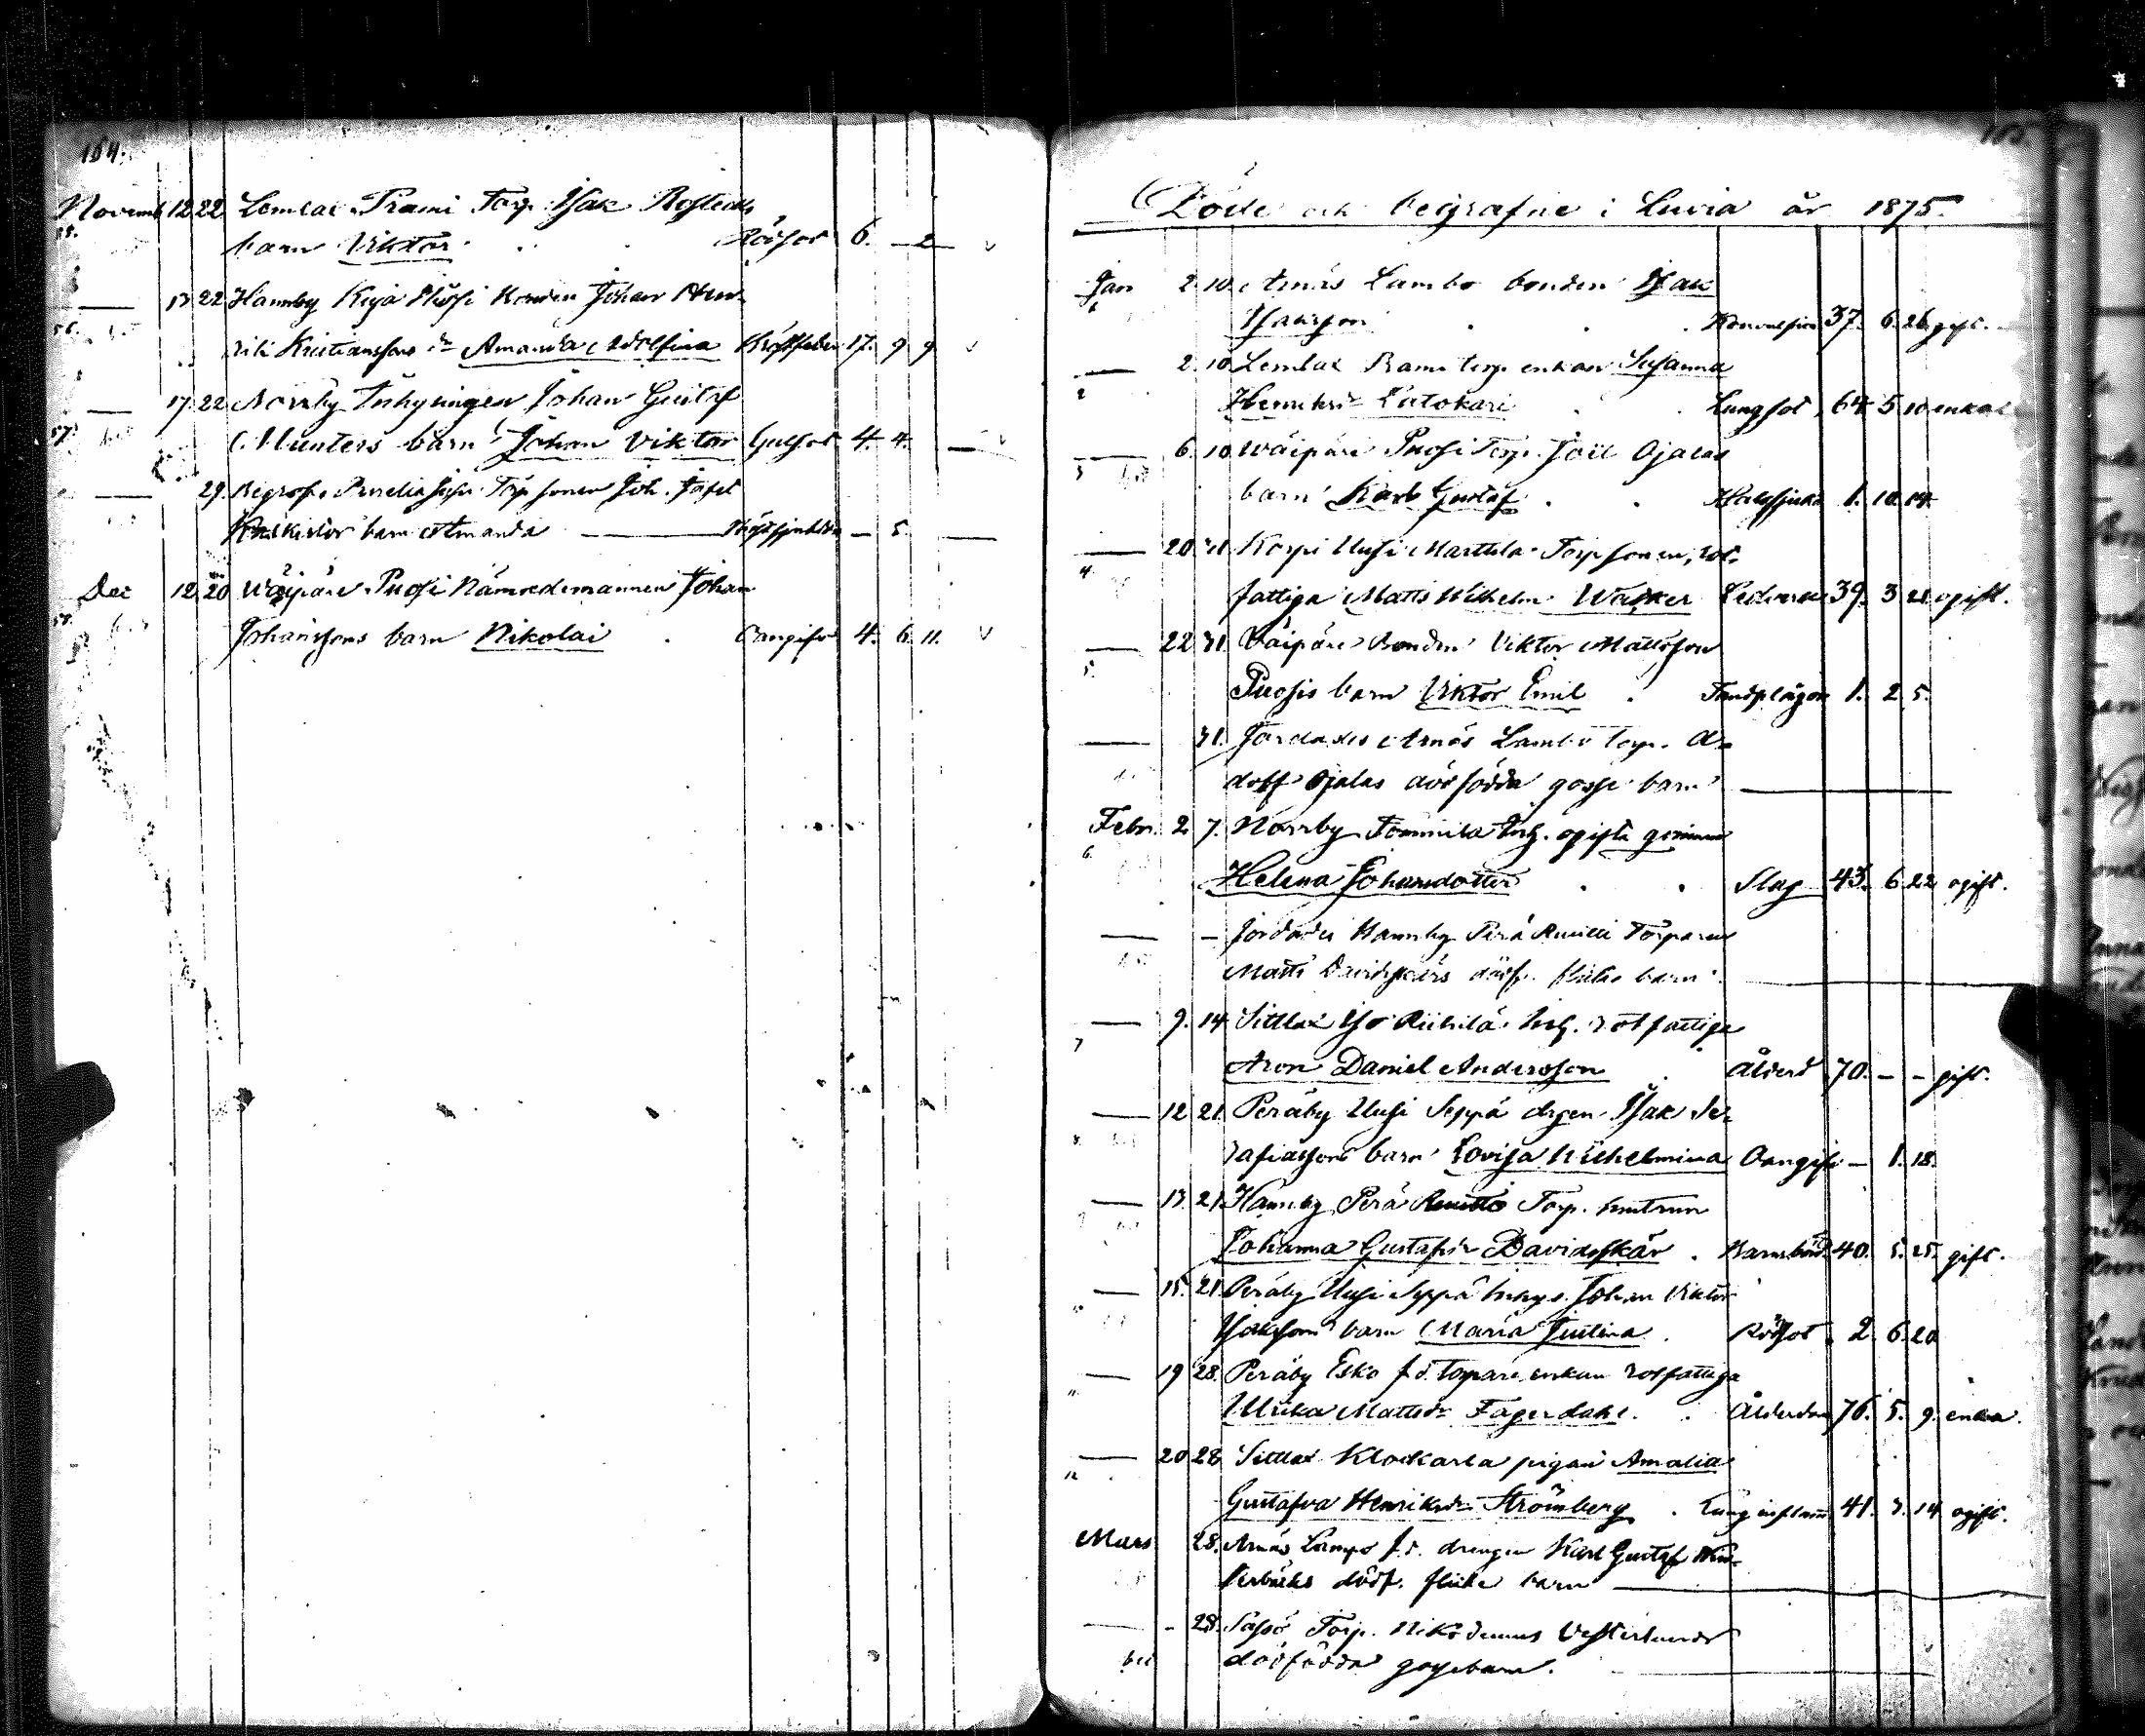 164.
Novemb 12 22 Lemlax Prami Torp. Isak Rosteds
55. barn Viktor Rödsot 6. — 2
— 13 22 Hannby Keja Skösi Johan Hen-
56. Kristianssons dr Amanda Adolfina Bröstfeber 17. 9 9
— 17 22 Norrby Inhysingen Johan Gustaf
57. Munters barn Johan Viktor Gulsot 4. 4. —
— 29. Begrofs Joh. Josef
barn Amanda — Bröstsjukdom — 5. —
Dec 12 20 Wäipäre Puosi Nämndemannen Johan
58. Johanssons barn Nikolai Oangifv 4. 6. 11.
165
Döde och begrafne i Luvia år 1875.
Jan 2. 10. Arnäs Lambo bonden Isak
1 Isaksson Konvulsion 37. 6. 26. gift.
— 2. 10 Lemlax Prami torp. enkan Susanna
2 Henriksdr Latokari Lungsot 64. 5. 10 enka
— 6. 10 Wäipäre Puosi Torp. Joel Ojalas
3 barn Karl Gustaf Halssjuka 1. 10. 14.
— 20 31 Korpi Uusi Marttila Torpsonen, rot-
4 fattiga Matts Wilhelm Wasker Ledverk 39. 3 21 ogift.
— 22 31 Väipäre Bonden Viktor Mattsson
5. Puosis barn Viktor Emil Tandplågor 1. 2. 5.
— 31. Jordades Arnäs Lambo Torp. A-
dolf Ojalas dödfödda gosse barn —
Febr. 2 7. Norrby Tommila Inh. ogifta qvinnan
6. Helena Johansdotter Slag 43. 6 22 ogift.
— – Jordades Hannby Perä Torparen
Matts Davidskärs dödf. flicke barn —
— 9. 14 Sittlax Yso Riihilä Inh. rotfattige
7 Aron Daniel Andersson Ålderd 70. – – gift.
— 12 21 Peräby Uusi Seppä drgen Isak Se-
8. rafiassons barn Lovisa Wilhelmina Oangifv — 1. 18.
— 13. 21. Hannby Perä Torp. hustrun
9 Johanna Gustafsdr Davidsskär Barnsbörd 40. 5. 25. gift.
— 15. 21. Peräby Uusi Seppä Inhys. Johan Viktor
10 Isakssons barn Maria Justina Rödsot 2. 6. 20
— 19 28. Peräby Esko f.d. torpare enkan rotfattiga
11. Ulrika Mattsdr Fagerdahl Ålderdom 76. 5. 9. enka.
— 20 28 Sittlax Klockarla pigan Amalia
12 Gustafva Henriksdr Strömberg Lunginflam 41. 3. 14 ogift.
Mars 28. Arnäs Lampo f.d. drengen Karl Gustaf
dödf. flicke barn —
— - 28. Sassö Torp. Nikodemus Vesterlunds
dödfödda gossebarn. —